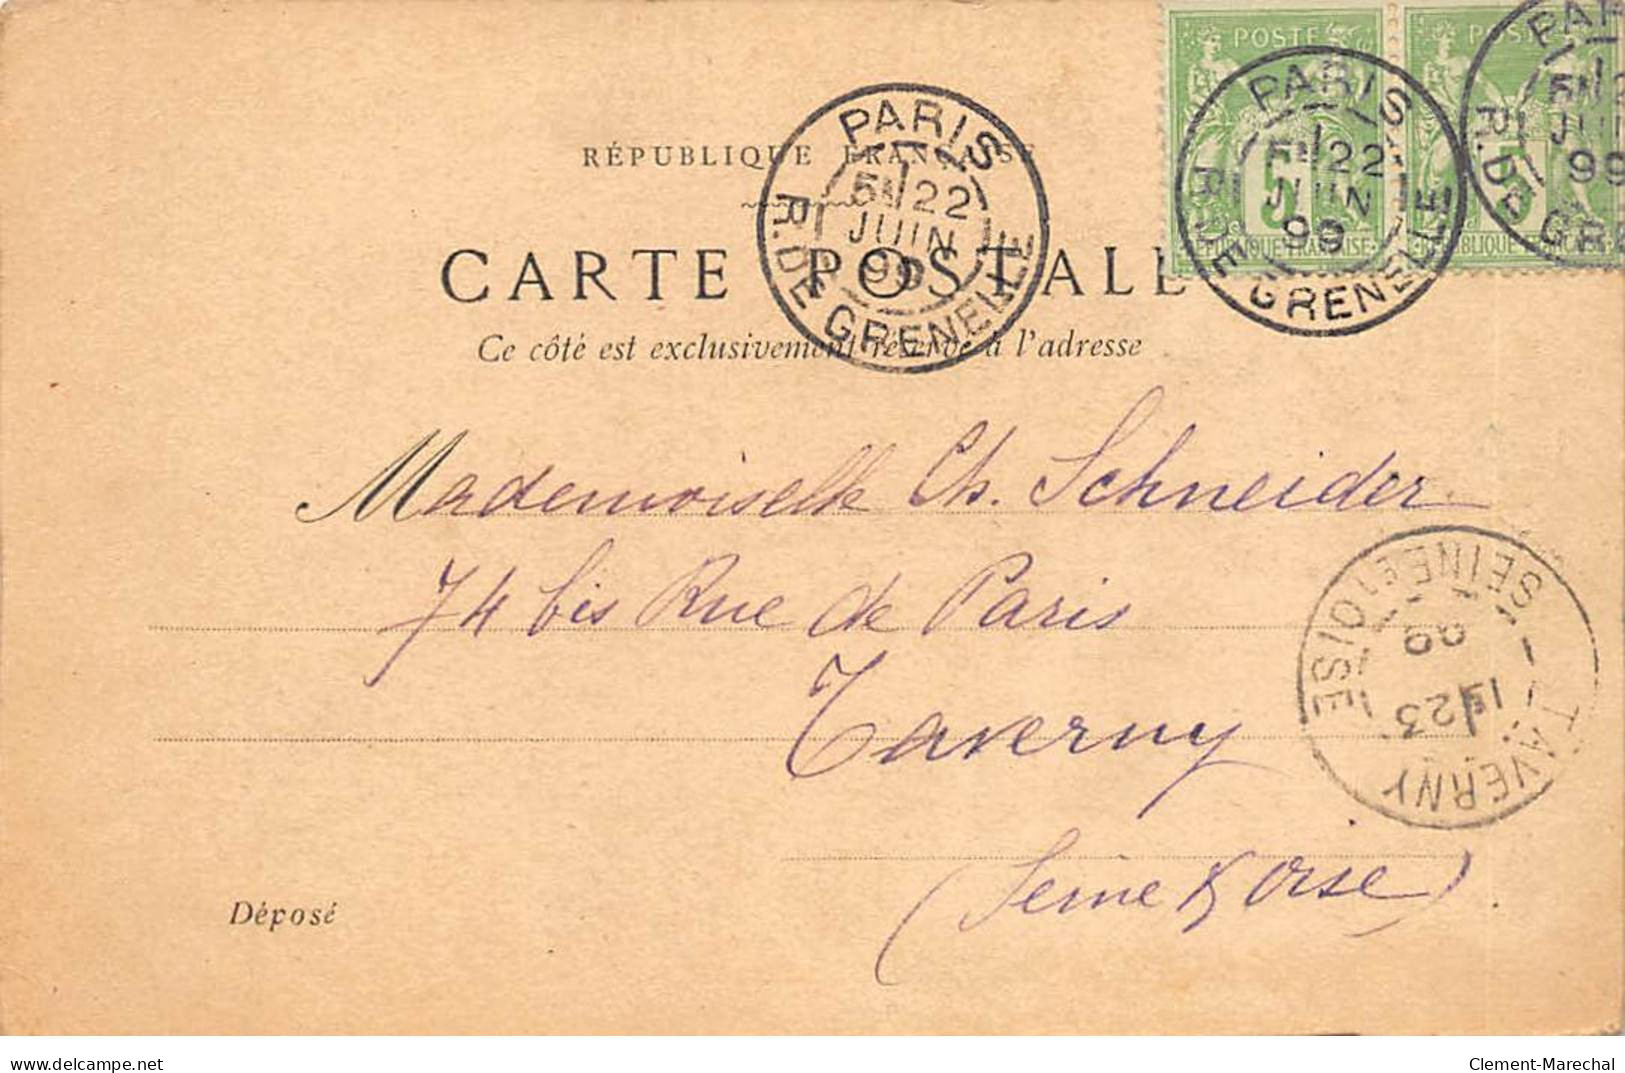 RÉPUBLIQUE FRANÇAISE
CARTE POSTALE
Ce côté est exclusivement réservé à l'adresse
POSTES
5
RÉPUBLIQUE FRANÇAISE
POSTES
5
RÉPUBLIQUE FRANÇAISE
PARIS
22
JUIN
99
R. DE GRENELLE
PARIS
22
JUIN
99
R. DE GRENELLE
PARIS
22
JUIN
99
R. DE GRE
Mademoiselle Ch. Schneider
74 bis Rue de Paris
Taverny
(Seine & Oise)
TAVERNY
1E 23
99
SEINE ET OISE
Déposé
delcampe.net
Clement-Marechal